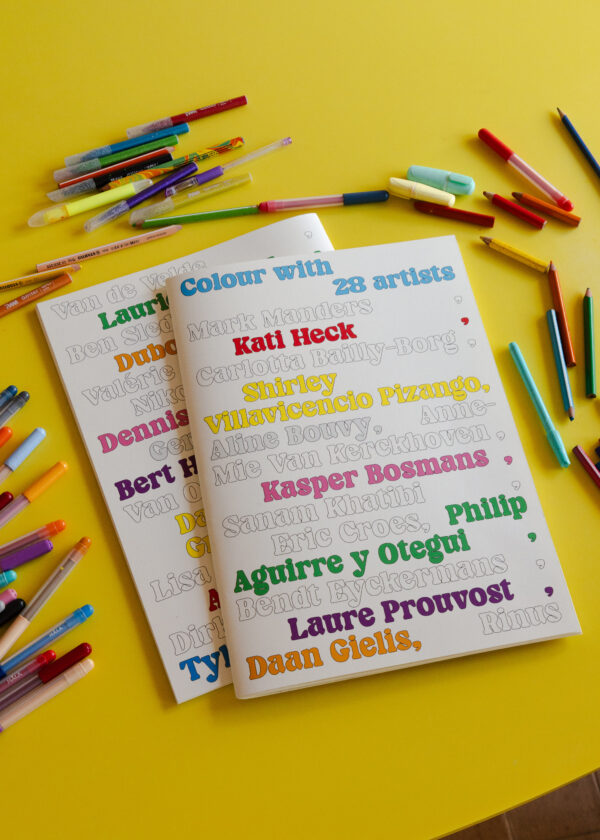 Colour with
28 artists
Mark Manders ,
Kati Heck ,
Carlotta Bailly-Borg ,
Shirley
Villavicencio Pizango,
Aline Bouvy, Anne-
Mie Van Kerckhoven ,
Kasper Bosmans ,
Sanam Khatibi ,
Eric Croes, Philip
Aguirre y Otegui ,
Bendt Eyckermans ,
Laure Prouvost ,
Daan Gielis, Rinus
Van de Velde ,
Ben
Valérie
Dennis
Bert
Van
Lisa